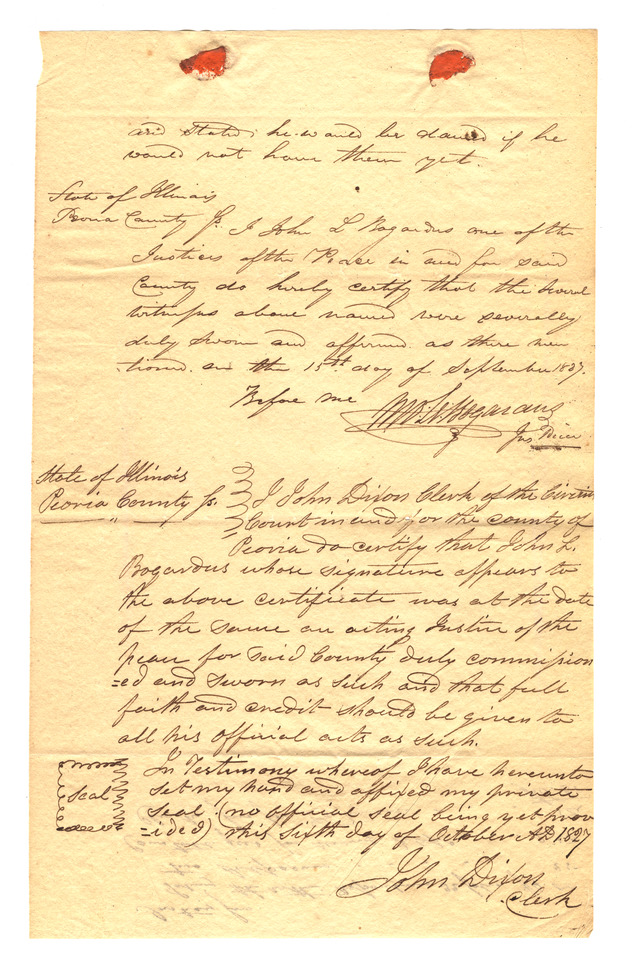 and stated; he would be damed if he
would not have them yet.
State of Illinois
Peoria County Ss. I John L Bogardus one of the
Justices of the Peace in and for said
County do hereby certify that the several
witnesses above named were severally
duly sworn and affirmed as there men
-tioned on the 15th day of September 1827.
Before me Jno. L. Bogardus
Jus Peace
State of Illinois
Peoria County Ss. I John Dixon Clerk of the Circuit
Court in and for the county of
Peoria do certify that John L.
Bogardus whose signature appears to
the above certificate was at the date
of the same an acting Justice of the
peace for said County duly commission
=ed and sworn as such and that full
faith and credit should be given to
all his official acts as such.
In Testimony whereof I have hereunto
Seal set my hand and affixed my private
seal (no official seal being yet prov
=ided) this sixth day of October AD 1827
John Dixon
Clerk